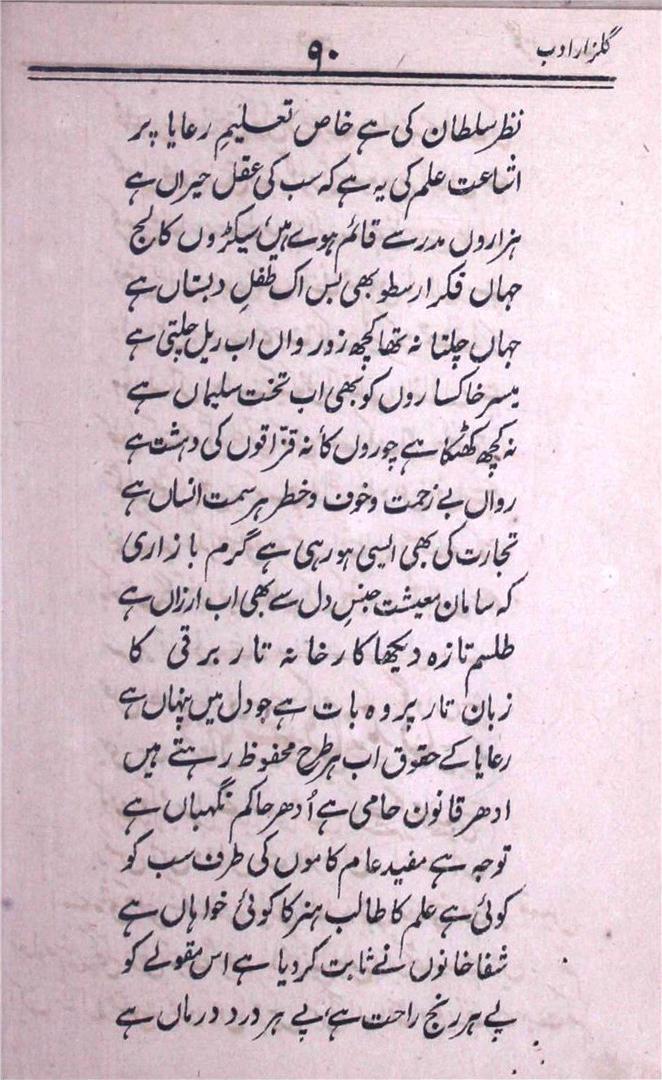 گلزار ادب
۹۰
نظر سلطان کی ہے خاص تعلیمِ رعایا پر
اشاعت علم کی یہ ہے کہ سب کی عقل حیراں ہے
ہزاروں مدرسے قائم ہوے ہیں، سیکڑوں کالج
جہاں فکر ارسطو بھی بس اک طفلِ دبستاں ہے
جہاں چلتا نہ تھا کچھ زور واں اب ریل چلتی ہے
میسر خاکساروں کو بھی اب تخت سلیماں ہے
نہ کچھ کھٹکا ہے چوروں کا نہ قزاقوں کی دہشت ہے
رواں بے زحمت و خوف و خطر ہر سمت انساں ہے
تجارت کی بھی ایسی ہو رہی ہے گرم بازاری
کہ سامان معیشت جنسِ دل سے بھی اب ارزاں ہے
طلسم تازہ دیکھا کارخانہ تار برقی کا
زبان تار پر وہ بات ہے جو دل میں پنہاں ہے
رعایا کے حقوق اب ہر طرح محفوظ رہتے ہیں
ادھر قانون حامی ہے اُدھر حاکم نگہباں ہے
توجہ ہے مفید عام کاموں کی طرف سب کو
کوئی ہے علم کا طالب ہنر کا کوئی خواہاں ہے
شفا خانوں نے ثابت کردیا ہے اس مقولے کو
پے ہر رنج راحت ہے، پے ہر درد درماں ہے